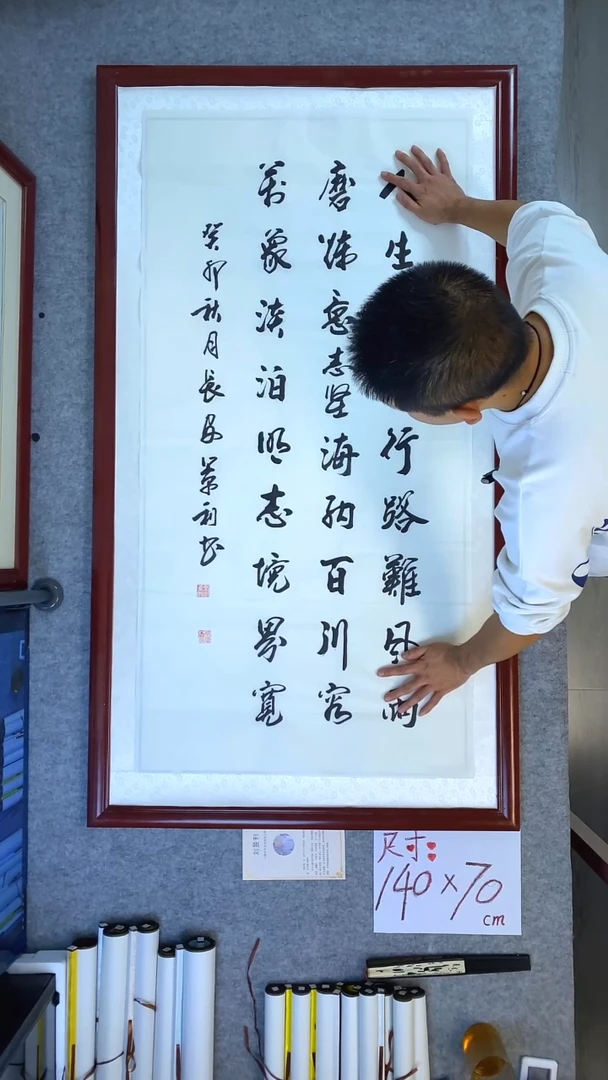 人生行路難風雨
磨煉意志坚海納百川容
萬象淡泊明志境界寬
癸卯秋月長安景利书
尺寸:
140×70
cm